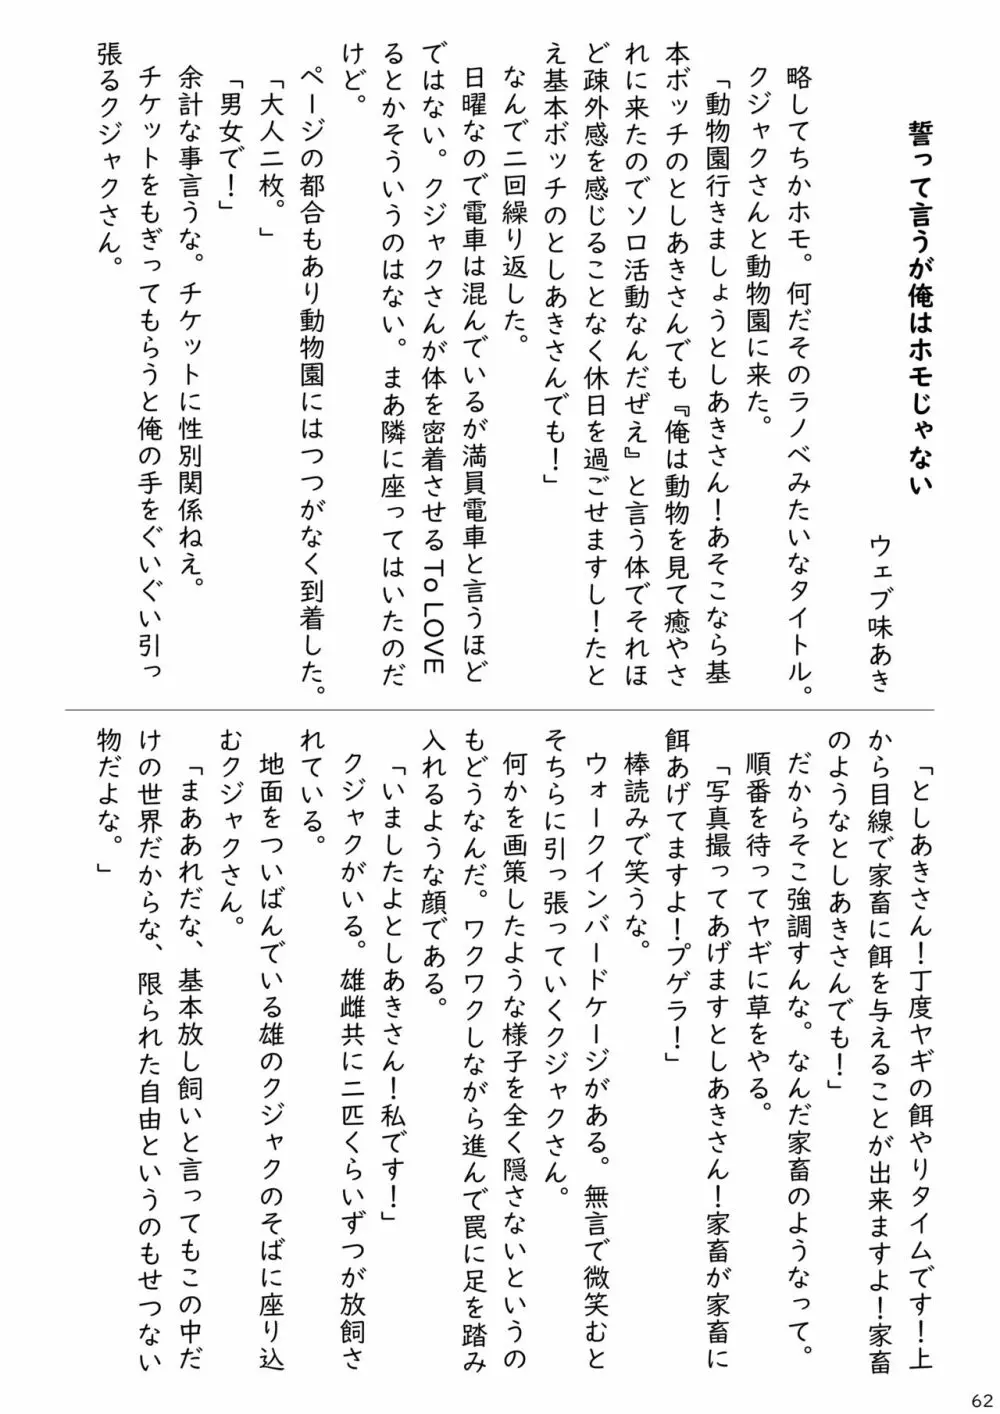 誓って言うが俺はホモじゃない
ウェブ味あき
略してちかホモ。何だそのラノベみたいなタイトル。
クジャクさんと動物園に来た。
「動物園行きましょうとしあきさん！あそこなら基
本ボッチのとしあきさんでも『俺は動物を見て癒やさ
れに来たのでソロ活動なんだぜえ』と言う体でそれほ
ど疎外感を感じることなく休日を過ごせますし！たと
え基本ボッチのとしあきさんでも！」
なんで二回繰り返した。
日曜なので電車は混んでいるが満員電車と言うほど
ではない。クジャクさんが体を密着させるTo LOVE
るとかそういうのはない。まあ隣に座ってはいたのだ
けど。
ページの都合もあり動物園にはつつがなく到着した。
「大人二枚。」
「男女で！」
余計な事言うな。チケットに性別関係ねえ。
チケットをもぎってもらうと俺の手をぐいぐい引っ
張るクジャクさん。
「としあきさん！丁度ヤギの餌やりタイムです！上
から目線で家畜に餌を与えることが出来ますよ！家畜
のようなとしあきさんでも！」
だからそこ強調すんな。なんだ家畜のようなって。
順番を待ってヤギに草をやる。
「写真撮ってあげますとしあきさん！家畜が家畜に
餌あげてますよ！プゲラ！」
棒読みで笑うな。
ウォークインバードケージがある。無言で微笑むと
そちらに引っ張っていくクジャクさん。
何かを画策したような様子を全く隠さないというの
もどうなんだ。ワクワクしながら進んで罠に足を踏み
入れるような顔である。
「いましたよとしあきさん！私です！」
クジャクがいる。雄雌共に二匹くらいずつが放飼さ
れている。
地面をついばんでいる雄のクジャクのそばに座り込
むクジャクさん。
「まああれだな、基本放し飼いと言ってもこの中だ
けの世界だからな、限られた自由というのもせつない
物だよな。」
62